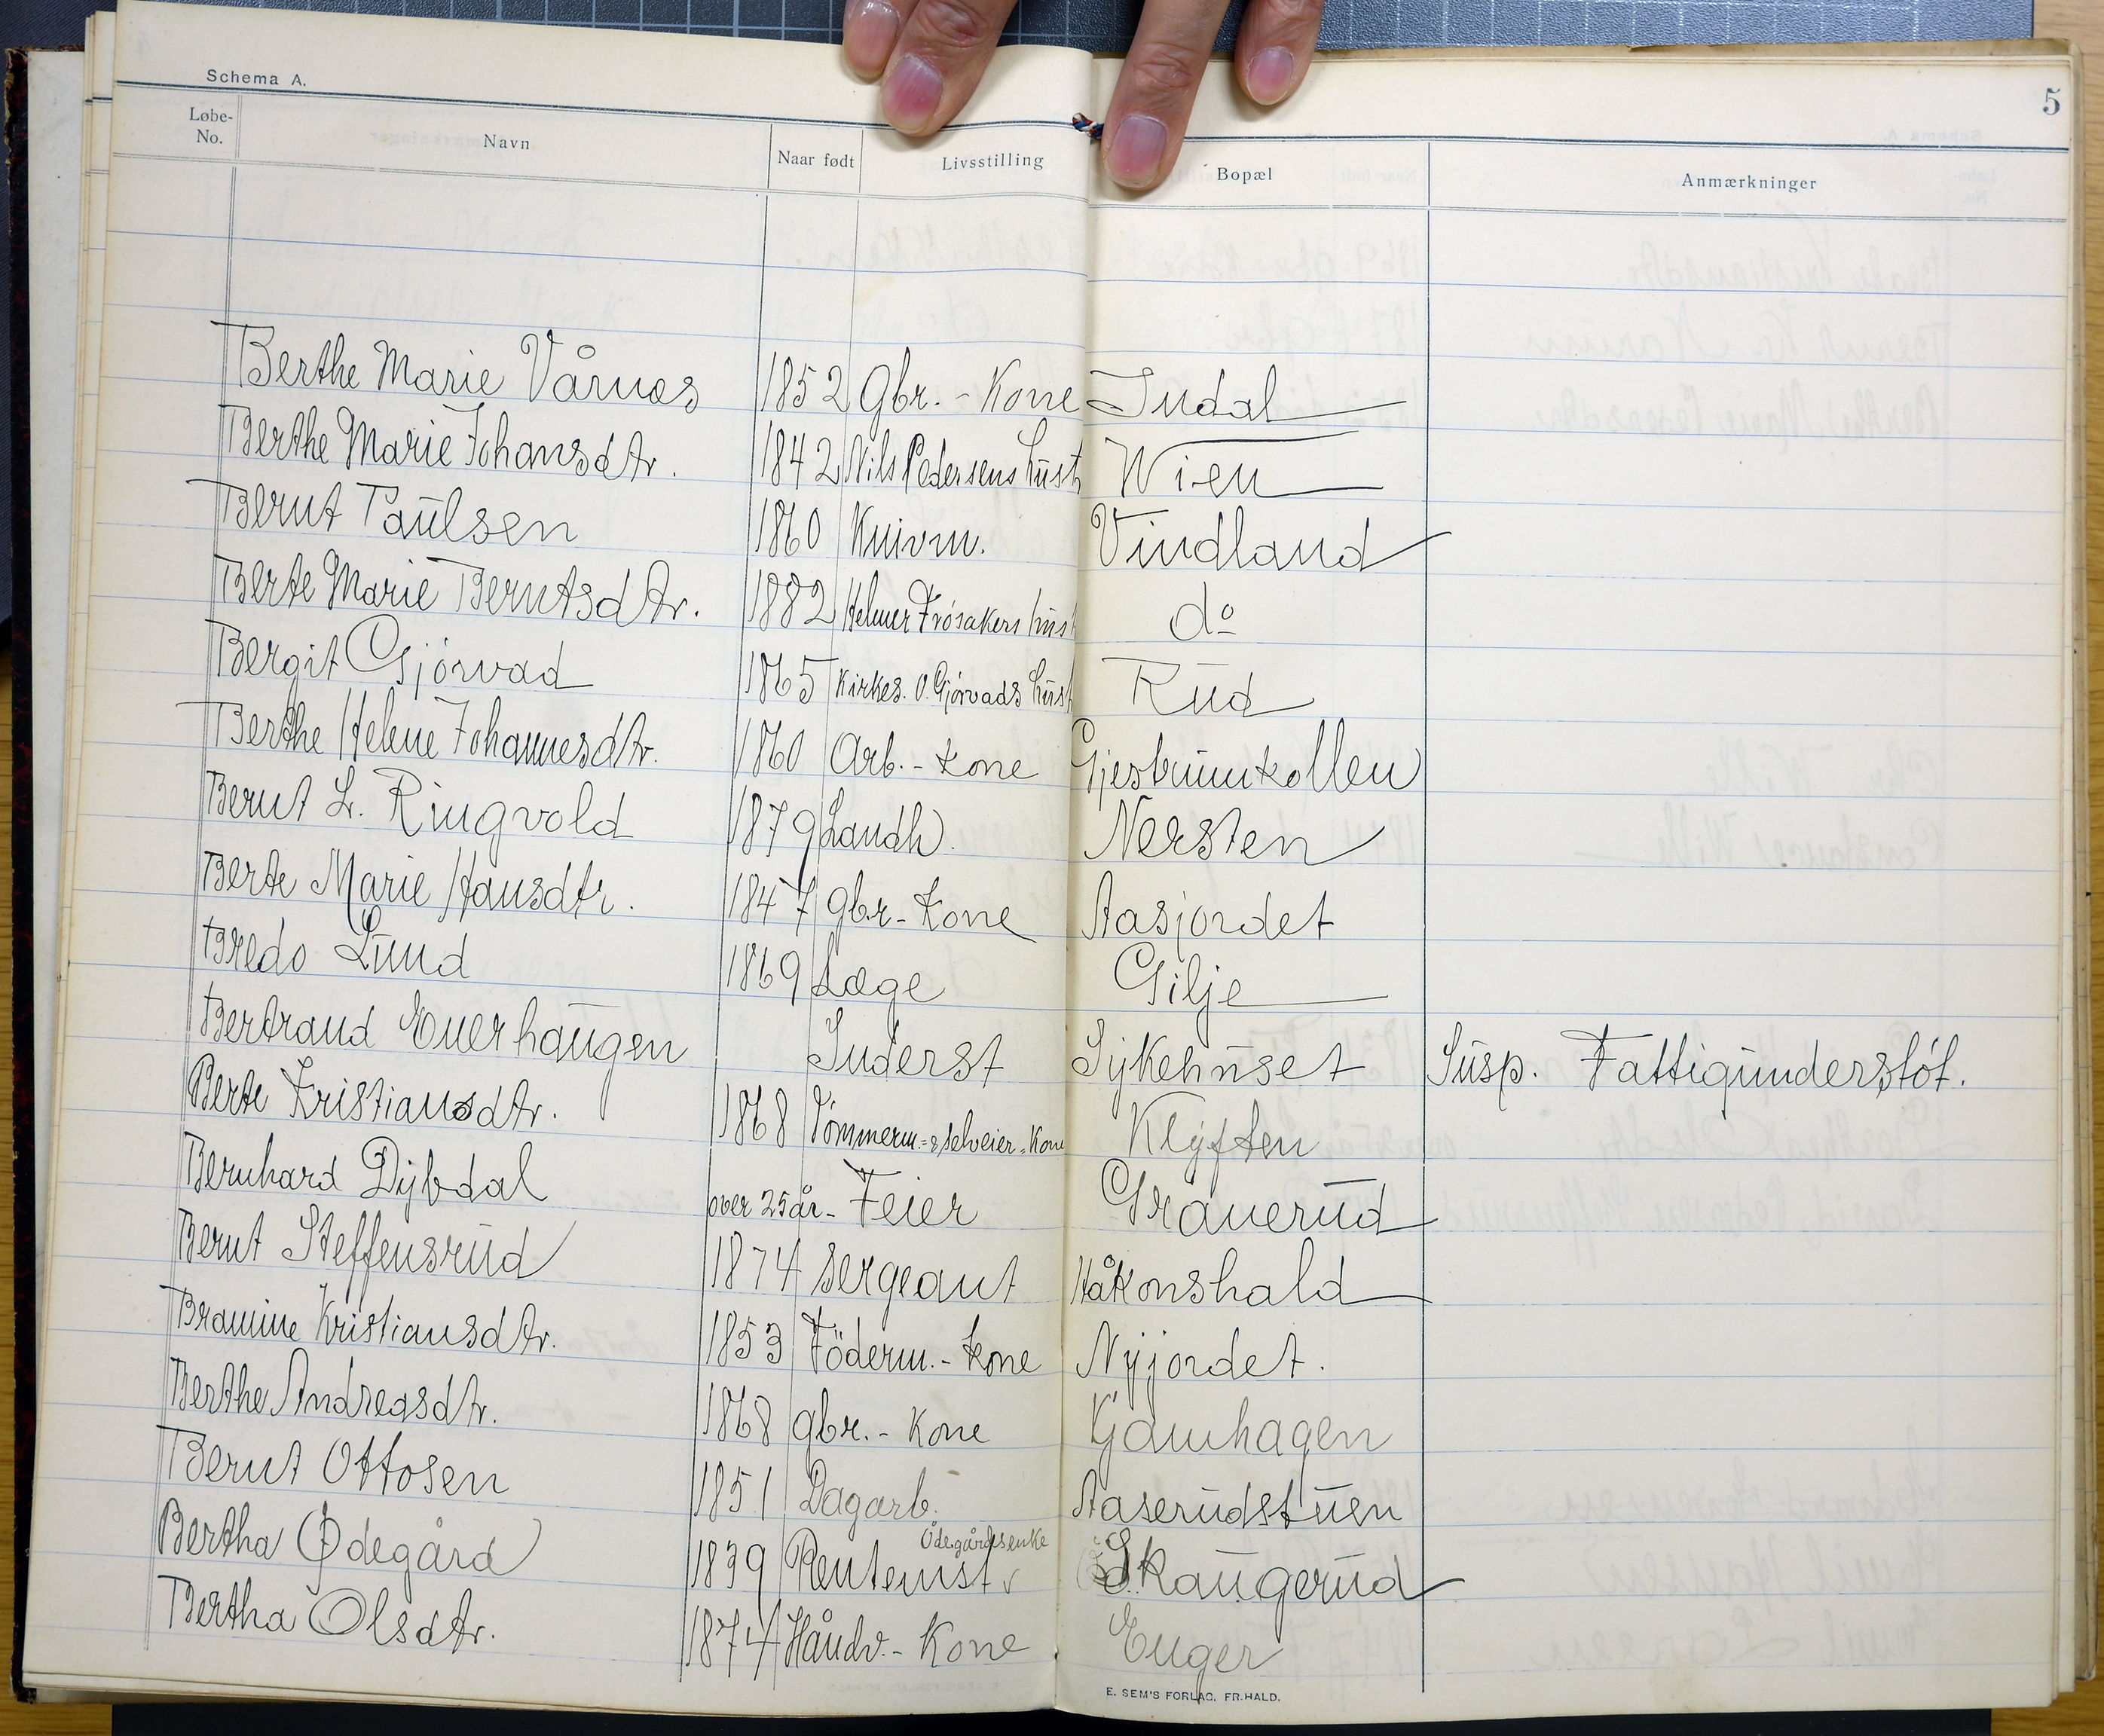 Schema A.
5
Løbe-No. Navn Naar født Livsstilling Bopæl Anmærkninger
Berthe Marie Vårnæs 1852 Gbr. - Kone Indal
Berthe Marie Johansdtr. 1842 Nils Pedersens hust Wien
Bernt Paulsen 1860 Knivm. Vindland
Berte Marie Berntsdtr. 1882 Helmer Frösakers hust do
Bergit Gjörvad 1865 Kirkes. O. Gjörvads hust Rud
Berthe Helene Johannesdtr. 1860 Arb. - kone Gjesbrumkollen
Bernt L. Ringvold 1879 Landh. Nersten
Berte Marie Hansdtr. 1847 gbr - kone Aasjordet
Bredo Lund 1869 Læge Gilje
Bertrand Enerhaugen Inderst Sykehuset Susp. Fattigunderstöt.
Berte Kristiansdtr. 1868 Tömmerm.- & selveier - Kone Klyften
Bernhard Dybdal over 25 år - Feier Granerud
Bernt Steffensrud 1874 sergeant Håkonshald
Bramine Kristiansdtr. 1853 Föderm. - kone Nyjordet.
Berthe Andreasdtr. 1868 gbr. - Kone Gamhagen
Bernt Ottosen 1851 Dagarb. Aaserudstuen
Bertha Ødegård 1839 Rentenist Ödegårdsenke Skaugerud
Bertha Olsdtr. 1874 Håndv. - Kone Enger
E. SEM'S FORLAG, FR.HALD.